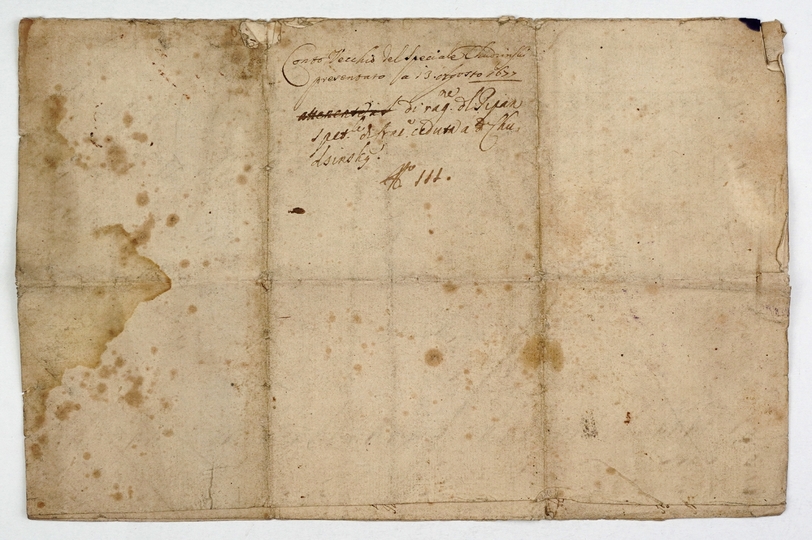 Conto Vecchio del Speciale
presentato la 13 Agosto 1677
di rag.ne d'l Pipan
spet.le di ceduta a Chu,
dsinsky.
No 111.